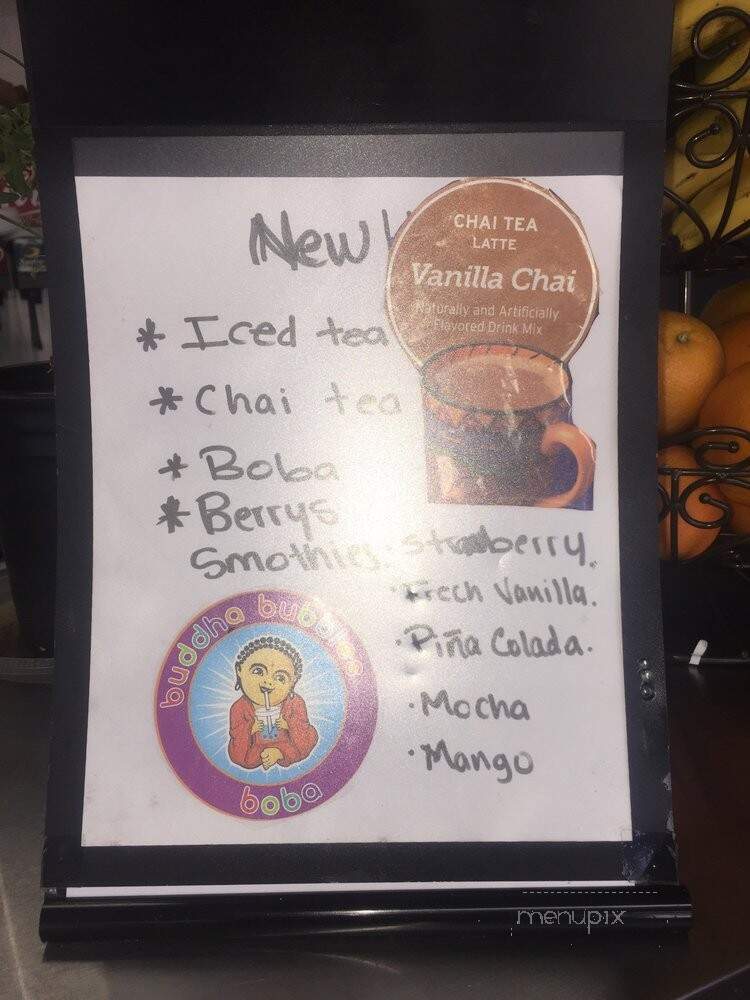 New
CHAI TEA
LATTE
Vanilla Chai
Naturally and Artificially
Flavored Drink Mix
* Iced tea
* Chai tea
* Boba
* Berrys
Smothies
· strawberry.
· Frech Vanilla.
· Piña Colada.
· Mocha
· Mango
buddha bubbles
boba
menupix